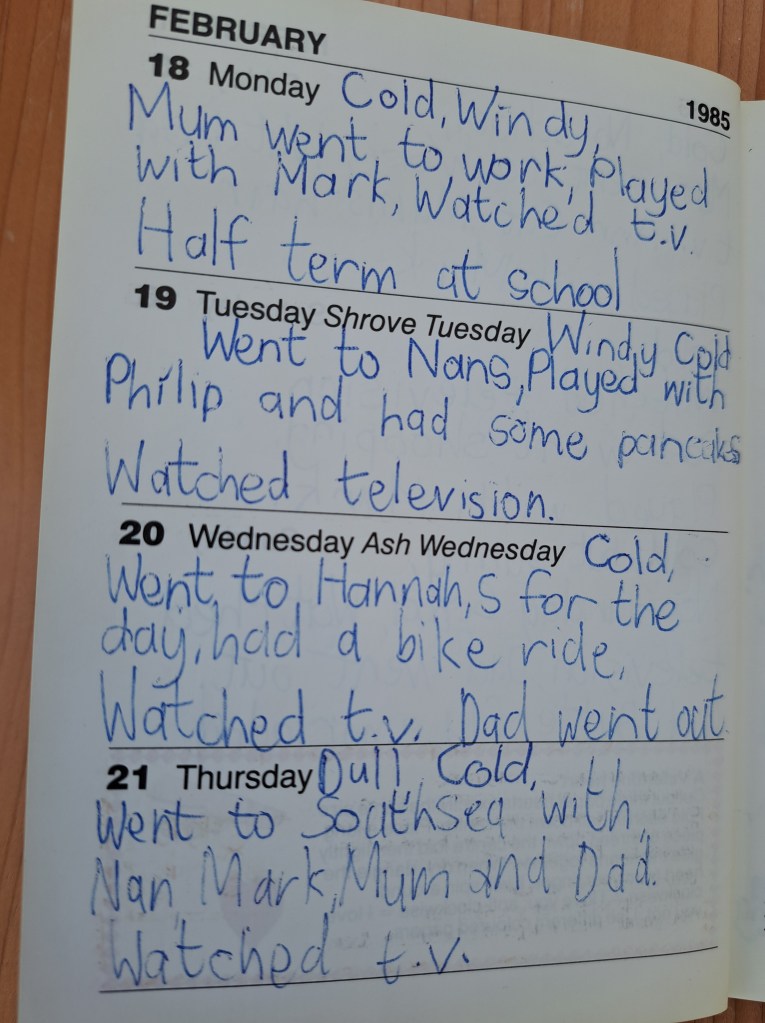 FEBRUARY
1985
18 Monday Cold, Windy,
Mum went to work, Played
with Mark, Watched t.v.
Half term at school
19 Tuesday Shrove Tuesday Windy Cold
Went to Nans, Played with
Philip and had some pancaks
Watched television.
20 Wednesday Ash Wednesday Cold,
Went to Hannah,S for the
day, had a bike ride,
Watched t.v. Dad went out.
21 Thursday Dull, Cold,
Went to Southsea with
Nan, Mark, Mum and Dad.
Watched t.v.